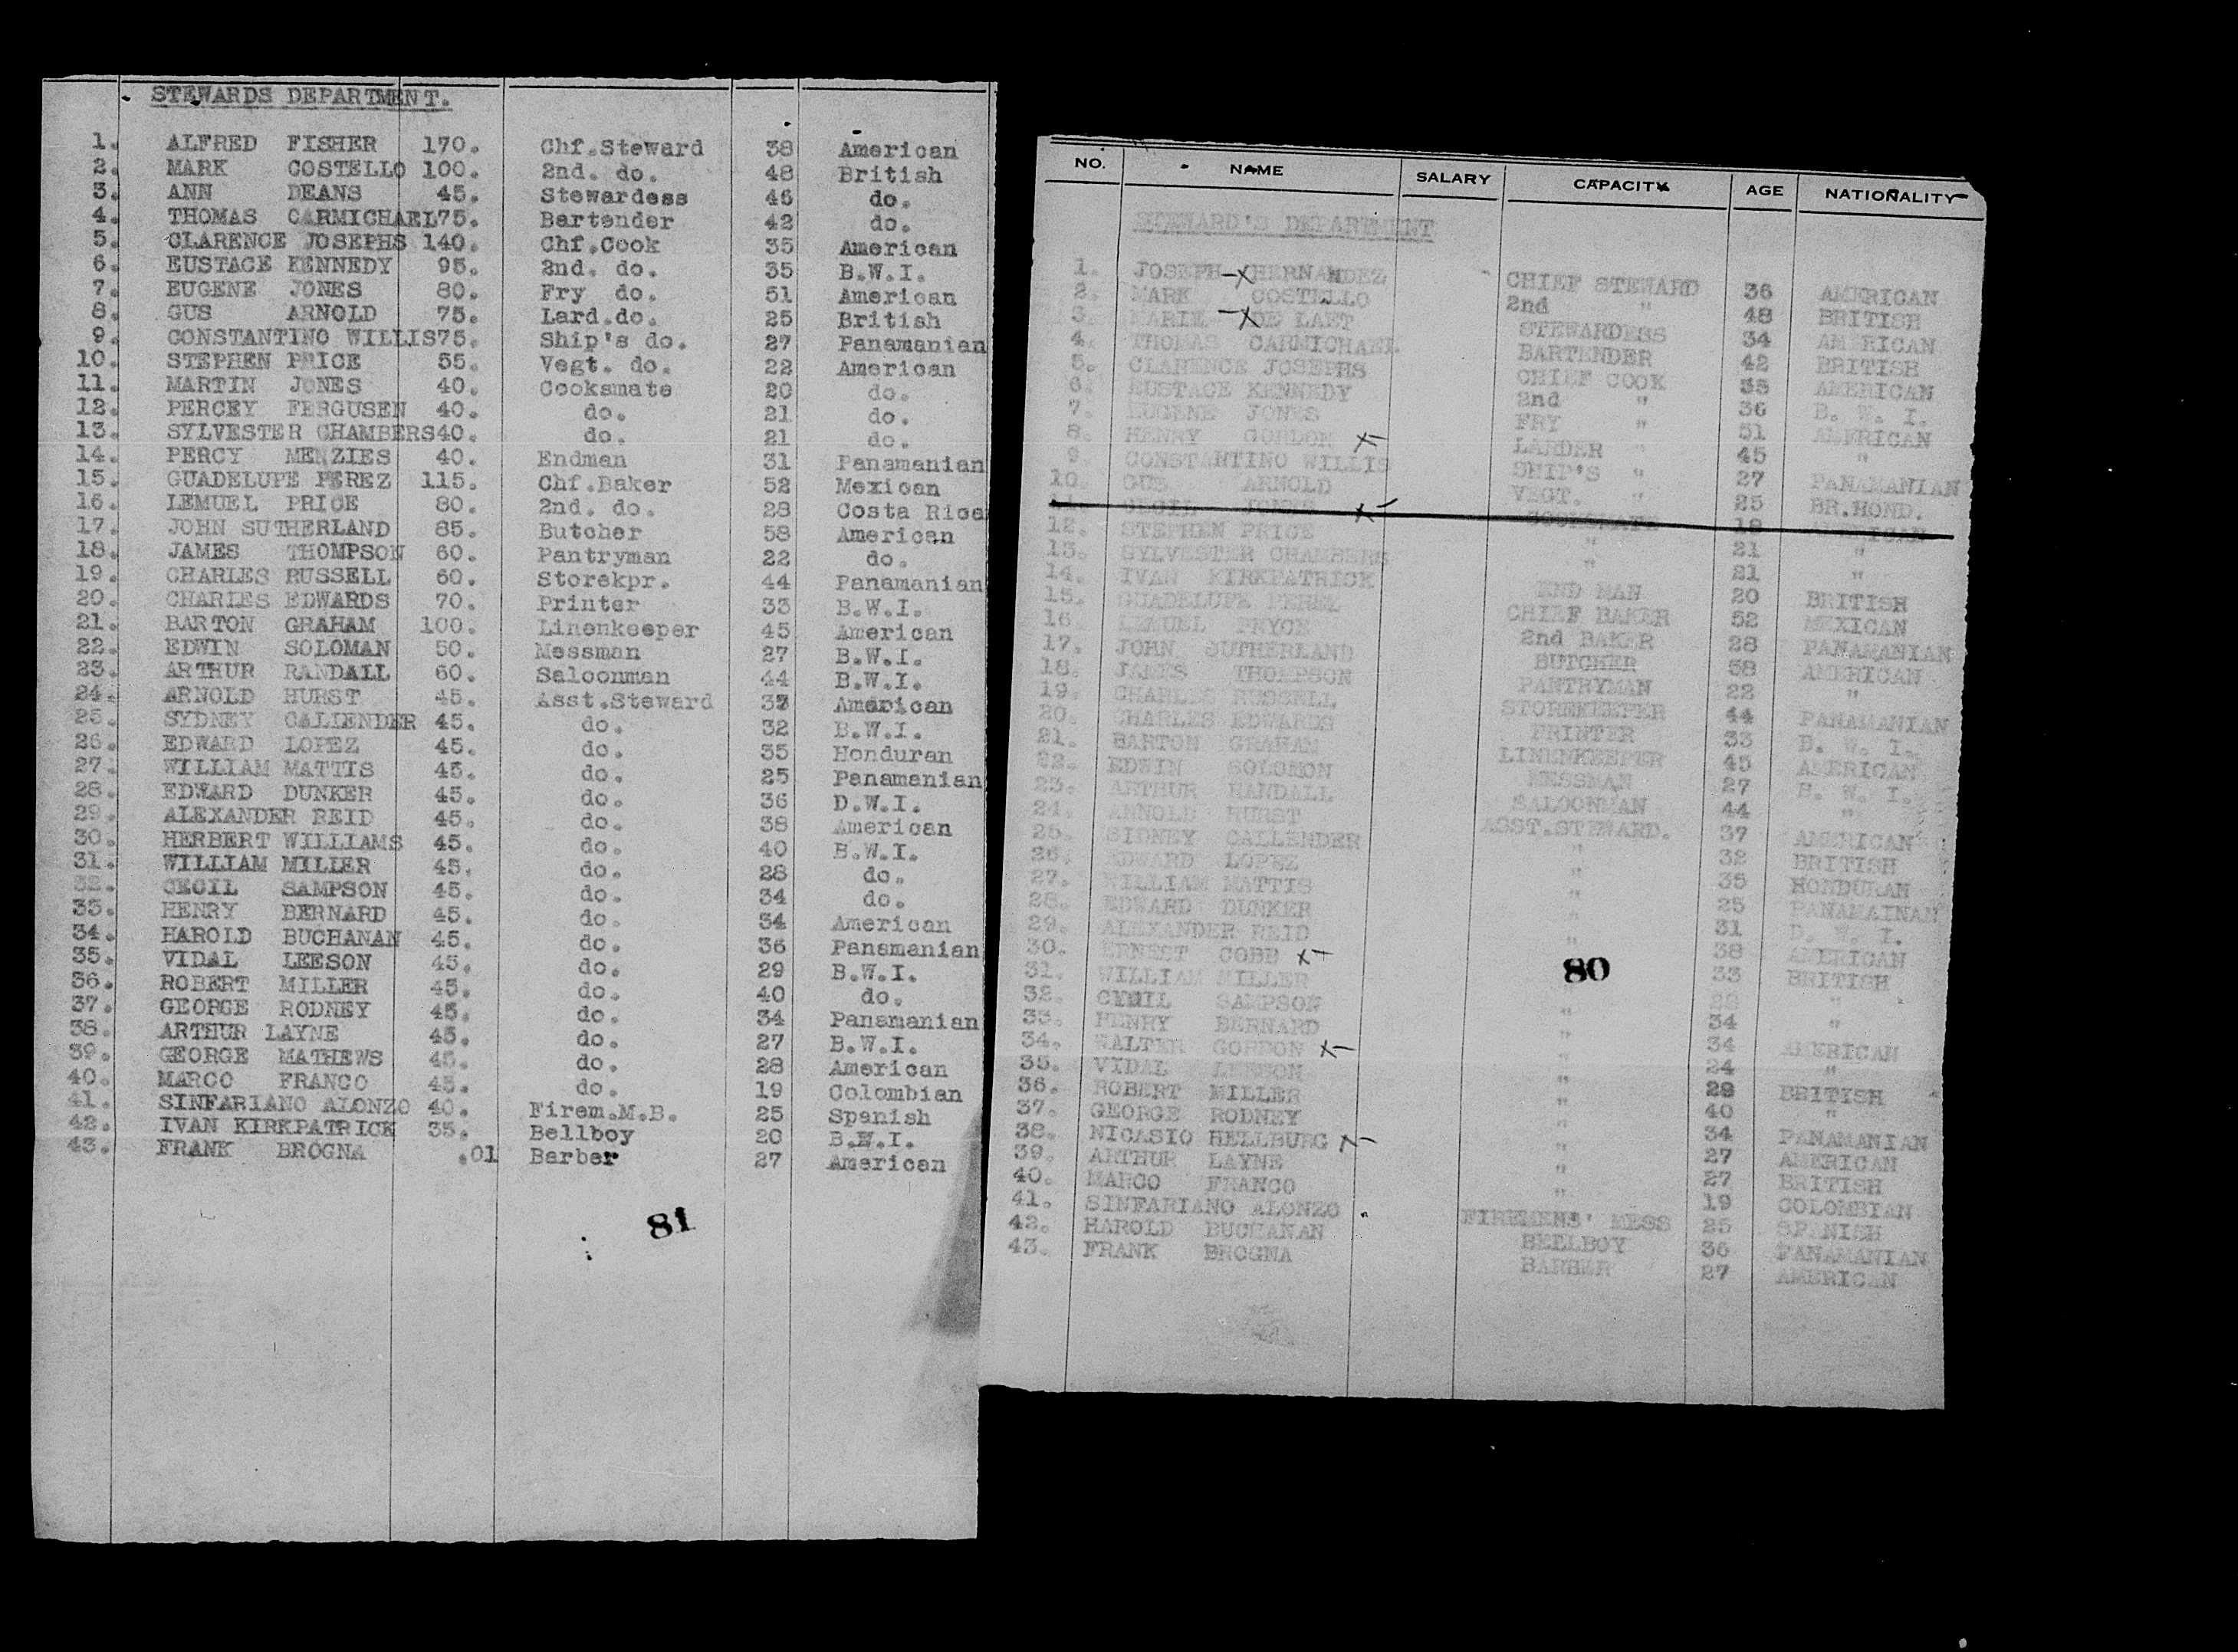 STEWARDS DEPARTMENT.
1. ALFRED FISHER 170. Chf.Steward 38 American
2. MARK COSTELLO 100. 2nd. do. 48 British
3. ANN DEANS 45. Stewardess 46 do.
4. THOMAS CARMICHAEL 75. Bartender 42 do.
5. CLARENCE JOSEPHS 140. Chf.Cook 35 American
6. EUSTACE KENNEDY 95. 2nd. do. 35 B.W.I.
7. EUGENE JONES 80. Fry do. 51 American
8. GUS ARNOLD 75. Lard.do. 25 British
9. CONSTANTINO WILLIS 75. Ship's do. 27 Panamanian
10. STEPHEN PRICE 55. Vegt. do. 22 American
11. MARTIN JONES 40. Cooksmate 20 do.
12. PERCEY FERGUSEN 40. do. 21 do.
13. SYLVESTER CHAMBERS 40. do. 21 do.
14. PERCY MENZIES 40. Endman 31 Panamanian
15. GUADELUPE PEREZ 115. Chf.Baker 52 Mexican
16. LEMUEL PRICE 80. 2nd. do. 28 Costa Rica
17. JOHN SUTHERLAND 85. Butcher 58 American
18. JAMES THOMPSON 60. Pantryman 22 do.
19. CHARLES RUSSELL 60. Storekpr. 44 Panamanian
20. CHARLES EDWARDS 70. Printer 33 B.W.I.
21. BARTON GRAHAM 100. Linenkeeper 45 American
22. EDWIN SOLOMAN 50. Messman 27 B.W.I.
23. ARTHUR RANDALL 60. Saloonman 44 B.W.I.
24. ARNOLD HURST 45. Asst.Steward 37 American
25. SYDNEY CALIENDER 45. do. 32 B.W.I.
26. EDWARD LOPEZ 45. do. 35 Honduran
27. WILLIAM MATTIS 45. do. 25 Panamanian
28. EDWARD DUNKER 45. do. 36 D.W.I.
29. ALEXANDER REID 45. do. 38 American
30. HERBERT WILLIAMS 45. do. 40 B.W.I.
31. WILLIAM MILLER 45. do. 28 do.
32. CECIL SAMPSON 45. do. 34 do.
33. HENRY BERNARD 45. do. 34 American
34. HAROLD BUCHANAN 45. do. 36 Panamanian
35. VIDAL LEESON 45. do. 29 B.W.I.
36. ROBERT MILLER 45. do. 40 do.
37. GEORGE RODNEY 45. do. 34 Panamanian
38. ARTHUR LAYNE 45. do. 27 B.W.I.
39. GEORGE MATHEWS 45. do. 28 American
40. MARCO FRANCO 45. do. 19 Colombian
41. SINFARIANO ALONZO 40. Firem.M.B. 25 Spanish
42. IVAN KIRKPATRICK 35. Bellboy 20 B.W.I.
43. FRANK BROGNA .01 Barber 27 American
81
NO. NAME SALARY CAPACITY AGE NATIONALITY
STEWARD'S DEPARTMENT
1. JOSEPH -X HERNANDEZ CHIEF STEWARD 36 AMERICAN
2. MARK COSTELLO 2nd " 48 BRITISH
3. MARIE -X DE LAET STEWARDESS 34 AMERICAN
4. THOMAS CARMICHAEL BARTENDER 42 BRITISH
5. CLARENCE JOSEPHS CHIEF COOK 35 AMERICAN
6. EUSTACE KENNEDY 2nd " 36 B. W. I.
7. EUGENE JONES FRY " 51 AMERICAN
8. HENRY GORDON X- LARDER " 45 "
9. CONSTANTINO WILLIS SHIP'S " 27 PANAMANIAN
10. GUS ARNOLD VEGT. " 25 BR.HOND.
11. CECIL JONES X- COOKSMATE 19 AMERICAN
12. STEPHEN PRICE " 21 "
13. SYLVESTER CHAMBERS " 21 "
14. IVAN KIRKPATRICK END MAN 20 BRITISH
15. GUADELUPE PEREZ CHIEF BAKER 52 MEXICAN
16. LEMUEL PRYCE 2nd BAKER 28 PANAMANIAN
17. JOHN SUTHERLAND BUTCHER 58 AMERICAN
18. JAMES THOMPSON PANTRYMAN 22 "
19. CHARLES RUSSELL STOREKEEPER 44 PANAMANIAN
20. CHARLES EDWARDS PRINTER 33 B. W. I.
21. BARTON GRAHAM LINENKEEPER 45 AMERICAN
22. EDWIN SOLOMON MESSMAN 27 B. W. I.
23. ARTHUR RANDALL SALOONMAN 44 "
24. ARNOLD HURST ASST.STEWARD. 37 AMERICAN
25. SIDNEY CALLENDER " 32 BRITISH
26. EDWARD LOPEZ " 35 HONDURAN
27. WILLIAM MATTIS " 25 PANAMAINAN
28. EDWARD DUNKER " 31 D. W. I.
29. ALEXANDER REID " 38 AMERICAN
30. ERNEST COBB X- 33 BRITISH
80
31. WILLIAM MILLER 28 "
32. CYRIL SAMPSON " 34 "
33. HENRY BERNARD " 34 AMERICAN
34. WALTER GORDON X- " 24 "
35. VIDAL LEESON " 29 BRITISH
36. ROBERT MILLER " 40 "
37. GEORGE RODNEY " 34 PANAMANIAN
38. NICASIO HELLBURG X- " 27 AMERICAN
39. ARTHUR LAYNE " 27 BRITISH
40. MARCO FRANCO " 19 COLOMBIAN
41. SINFARIANO ALONZO FIREMENS' MESS 25 SPANISH
42. HAROLD BUCHANAN BELLBOY 36 PANAMANIAN
43. FRANK BROGNA BARBER 27 AMERICAN